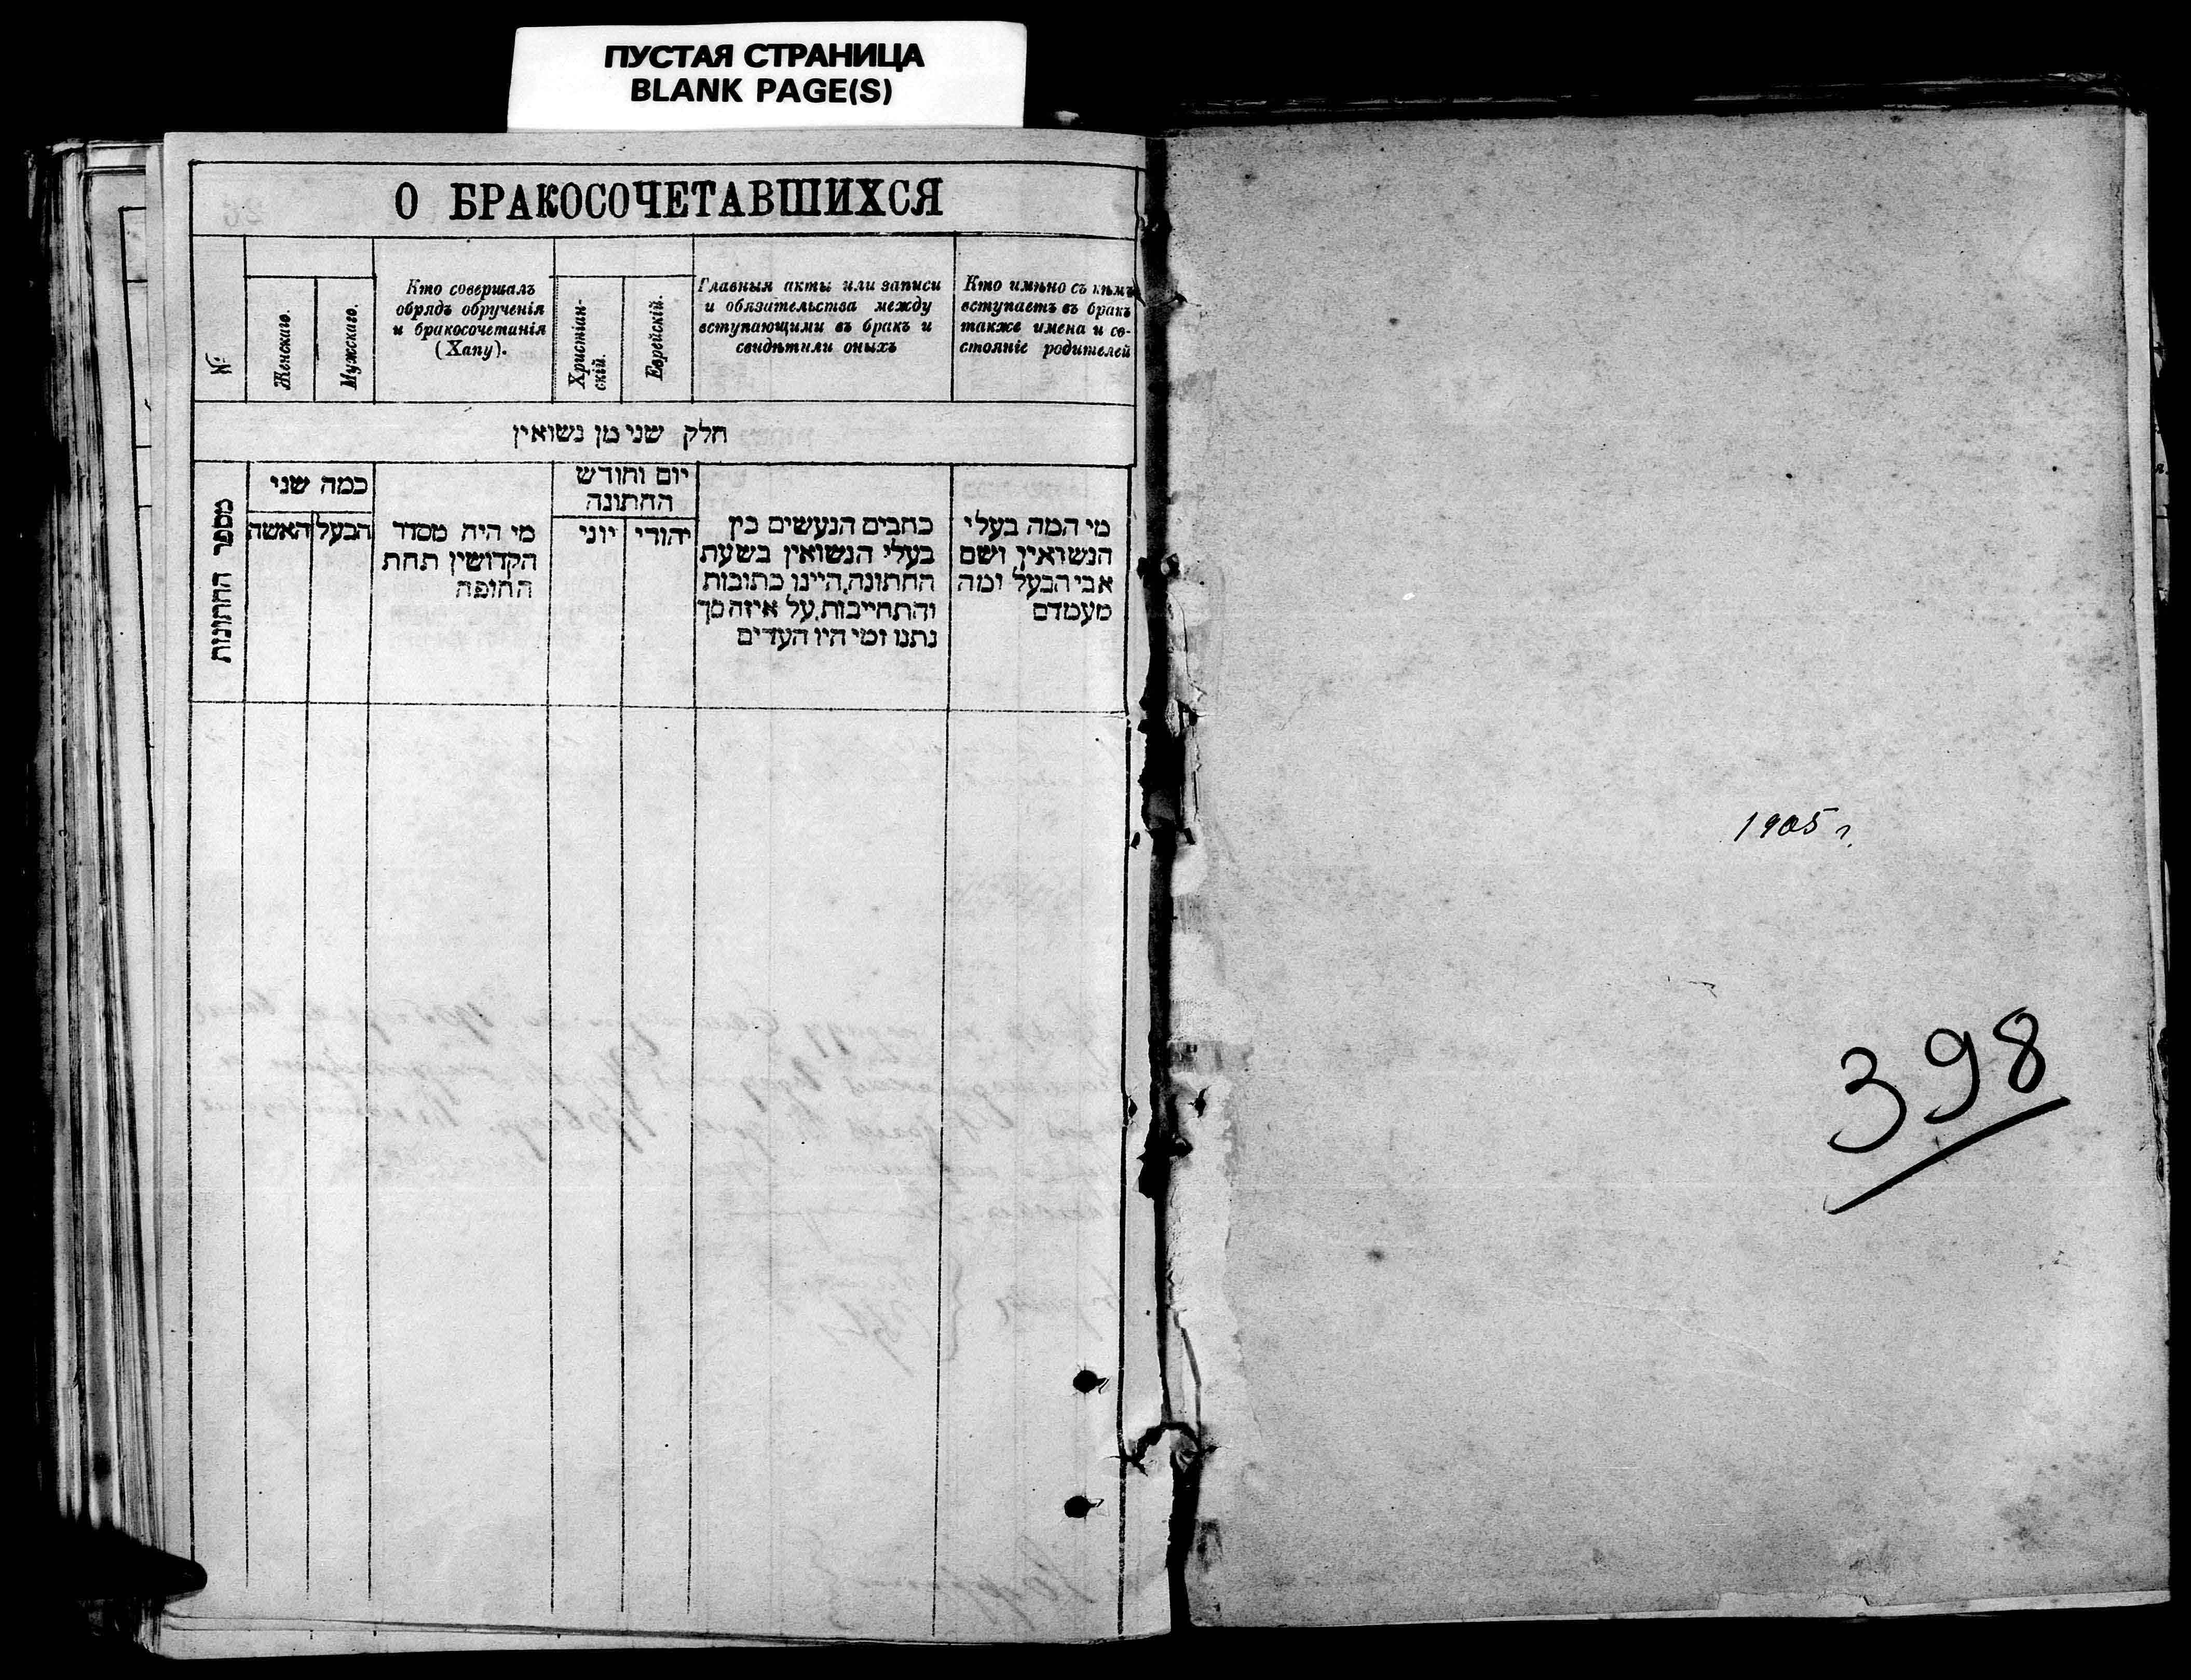 ПУСТАЯ СТРАНИЦА
BLANK PAGE(S)
О БРАКОСОЧЕТАВШИХСЯ
№
Женскаго.
Мужскаго.
Кто совершалъ
обрядъ обрученія
и бракосочетанія
(Хапу).
Христіан-
скій.
Еврейскій.
Главныя акты или записи
и обязательства между
вступающими въ бракъ и
свидѣтили оныхъ
Кто имѣно съ кѣмъ
вступаетъ въ бракъ
также имена и со-
стояніе родителей
חלק שני מן נשואין
מספר החתונות
כמה שני
האשה
הבעל
מי היה מסדר
הקדושין תחת
החופה
יום וחודש
החתונה
יוני
יהודי
כתבים הנעשים בין
בעלי הנשואין בשעת
החתונה, היינו כתובות
והתחייבות, על איזה סך
נתנו ומי היו העדים
מי המה בעלי
הנשואין, ושם
אבי הבעל ומה
מעמדם
1905 г.
398